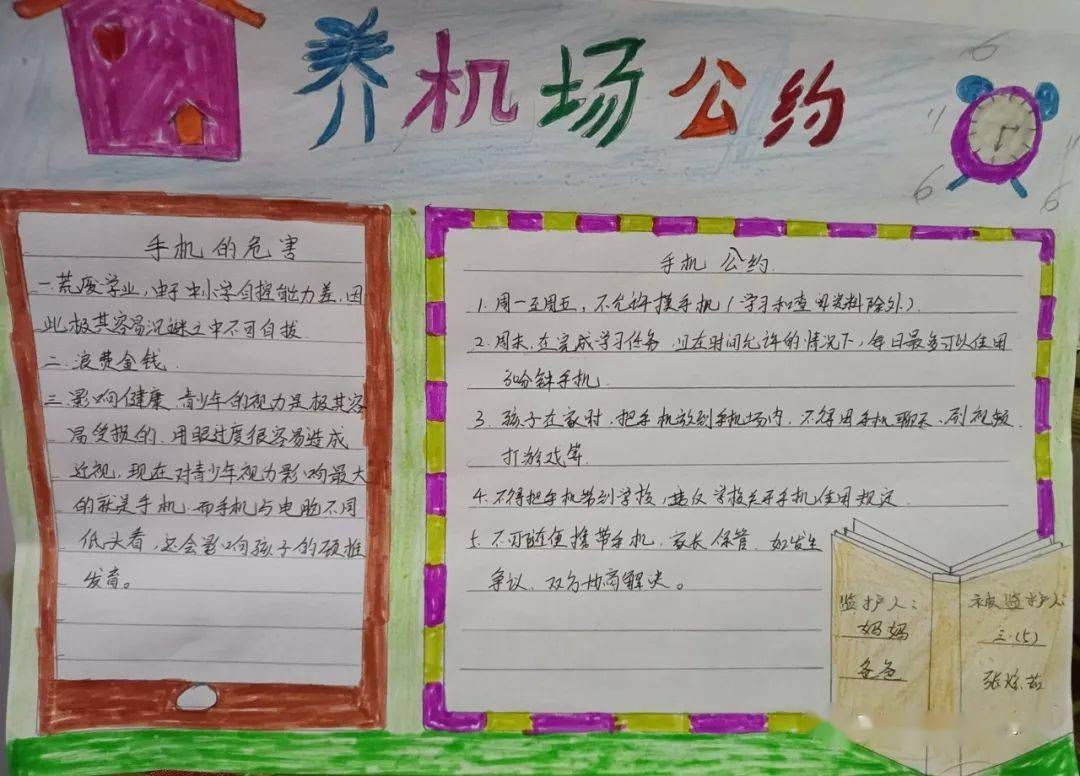 养机场公约
6
6
6
手机的危害
一.荒废学业,由于中小学自控能力差,因
此极其容易沉谜之中不可自拔.
二.浪费金钱.
三.影响健康.青少年的视力是极其容
易受损的.用眼过度很容易造成
近视,现在对青少年视力影响最大
的就是手机.而手机与电脑不同
低头看,还会影响孩子的颈椎
发育。
手机公约.
1.周一至周五,不允许摸手机(学习和查阅资料除外).
2.周末,在完成学习任务,且在时间允许的情况下,每日最多可以使用
30分钟手机.
3.孩子在家时,把手机放到手机场内,不得用手机聊天、刷视频.
打游戏等.
4.不得把手机带到学校,违反学校关于手机使用规定.
5.不可随便携带手机,家长保管.如发生
争议,双方协商解决。
监护人:
妈妈
爸爸
被监护人:
三.(5)
张